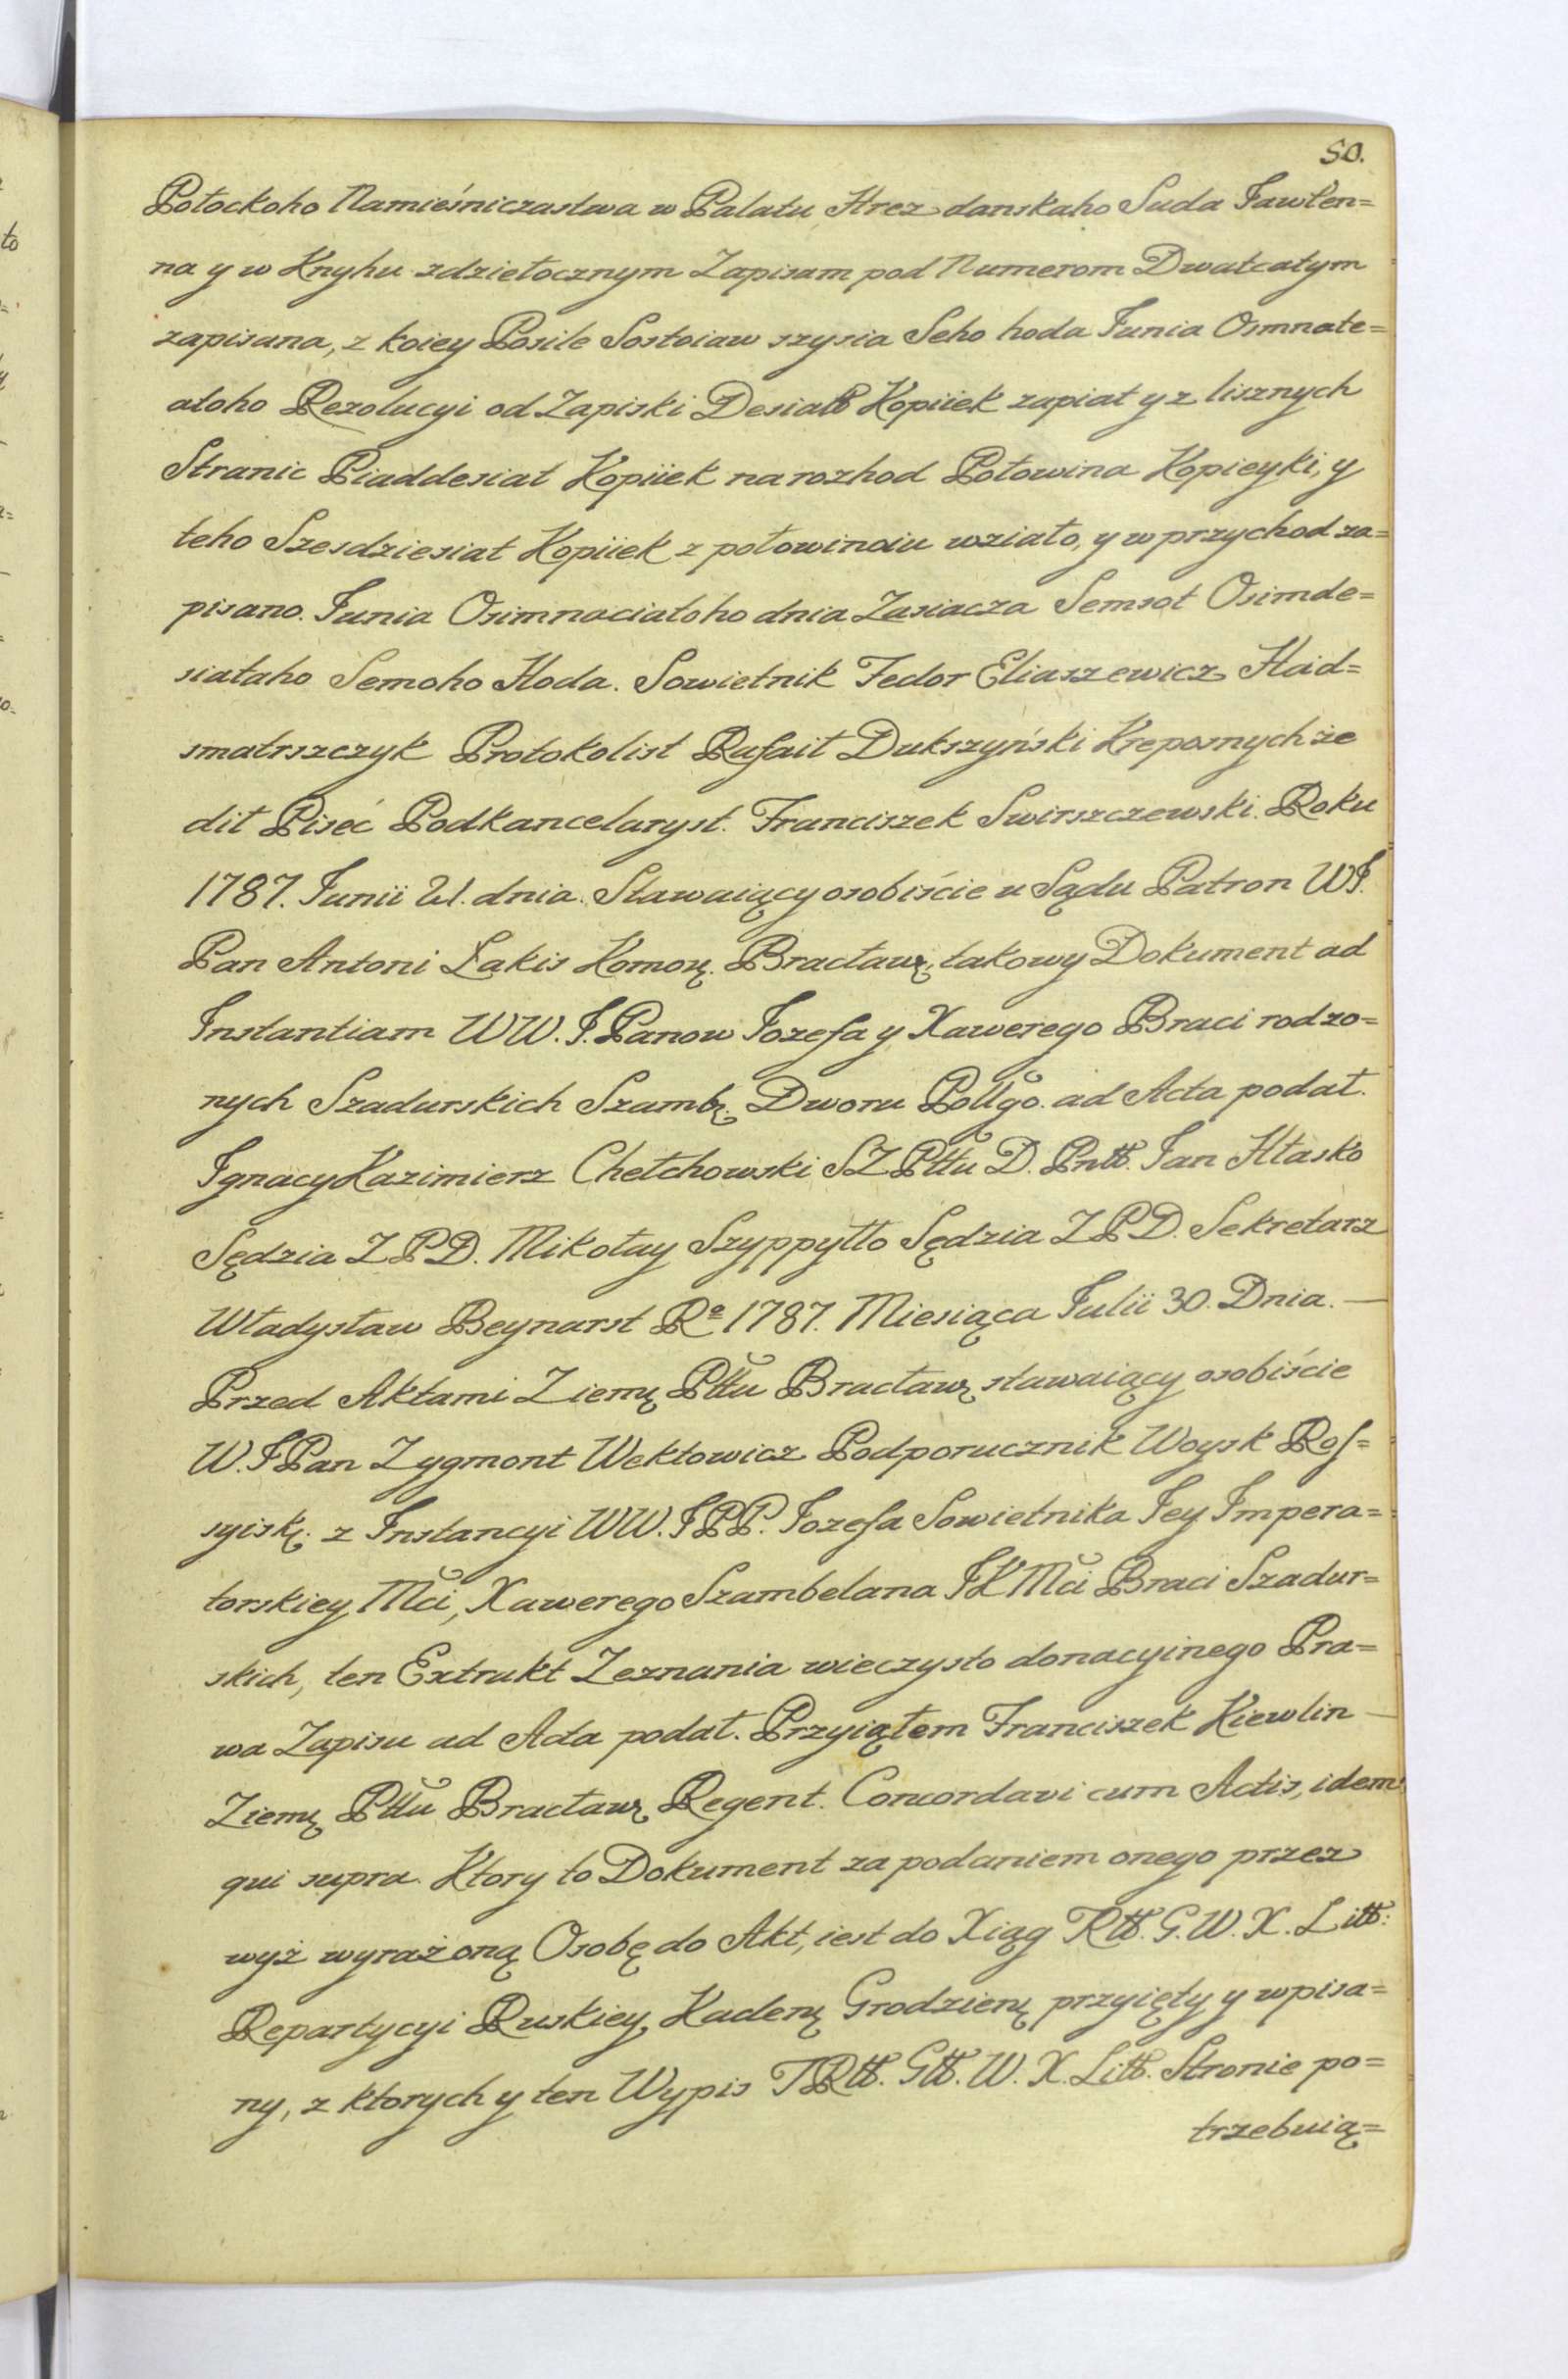 50.
Połockoho Namieśniczastwa w Palatu Hrez danskaho Suda Jawłen=
na y w Knyhu zdziełocznym Zapisam pod Numerom Dwatcatym
zapisana, z koiey Posile Sostoiaw szysia Seho hoda Junia Osmnate=
atoho Rezolucyi od Zapiski Desiatt Kopiiek zapiat y z lisznych
Stranic Piaddesiat Kopiiek na rozhod Połowina Kopieyki, y
teho Szesdziesiat Kopiiek z połowinoiu wziato, y w przychod za=
pisano. Junia Osimnaciatoho dnia Zasiacza Semsot Osimde=
siataho Semoho Hoda. Sowietnik Fedor Eliaszewicz Had=
smatrszczyk Protokolist Rafait Dukszyński Kreposnych że
dit Piseć Podkancelaryst. Franciszek Swirszczewski. Roku
1787. Junii 21. dnia. Stawaiący osobiście u Sądu Patron WJ.
Pan Antoni Łakis Komorꝫ. Bracławꝫ. takowy Dokument ad
Instantiam WW. J. Panow Jozefa y Xawerego Braci rodzo=
nych Szadurskich Szambꝫ. Dworu Pollgo. ad Acta podał.
Ignacy Kazimierz Chełchowski SZ Pttu D. Pntt. Jan Hłasko
Sędzia Z P D. Mikołay Szyppyłło Sędzia Z P D. Sekretarz
Władysław Beynarst Rº 1787. Miesiąca Julii 30. Dnia. —
Przed Aktami Ziemꝫ Pttu Bracławꝫ stawaiący osobiście
W. J Pan Zygmont Wektowicz Podporucznik Woysk Ros=
syiskꝫ. z Instancyi WW. J P P. Jozefa Sowietnika Jey Impera=
torskiey Mci, Xawerego Szambelana J K Mci Braci Szadur=
skich, ten Extrukt Zeznania wieczysto donacyinego Pra=
wa Zapisu ad Acta podał. Przyiąłem Franciszek Kiewlin —
Ziemꝫ Pttu Bracławꝫ Regent. Concordavi cum Actis, idem
qui supra. Ktory to Dokument za podaniem onego przez
wyż wyrażoną Osobę do Akt, iest do Xiąg Rtt. G. W. X. Litt:
Repartycyi Ruskiey, Kadenꝫ Grodzienꝫ przyięty y wpisa=
ny, z ktorych y ten Wypis T Rtt. Gtt. W. X. Litt. Stronie po=
trzebuią=